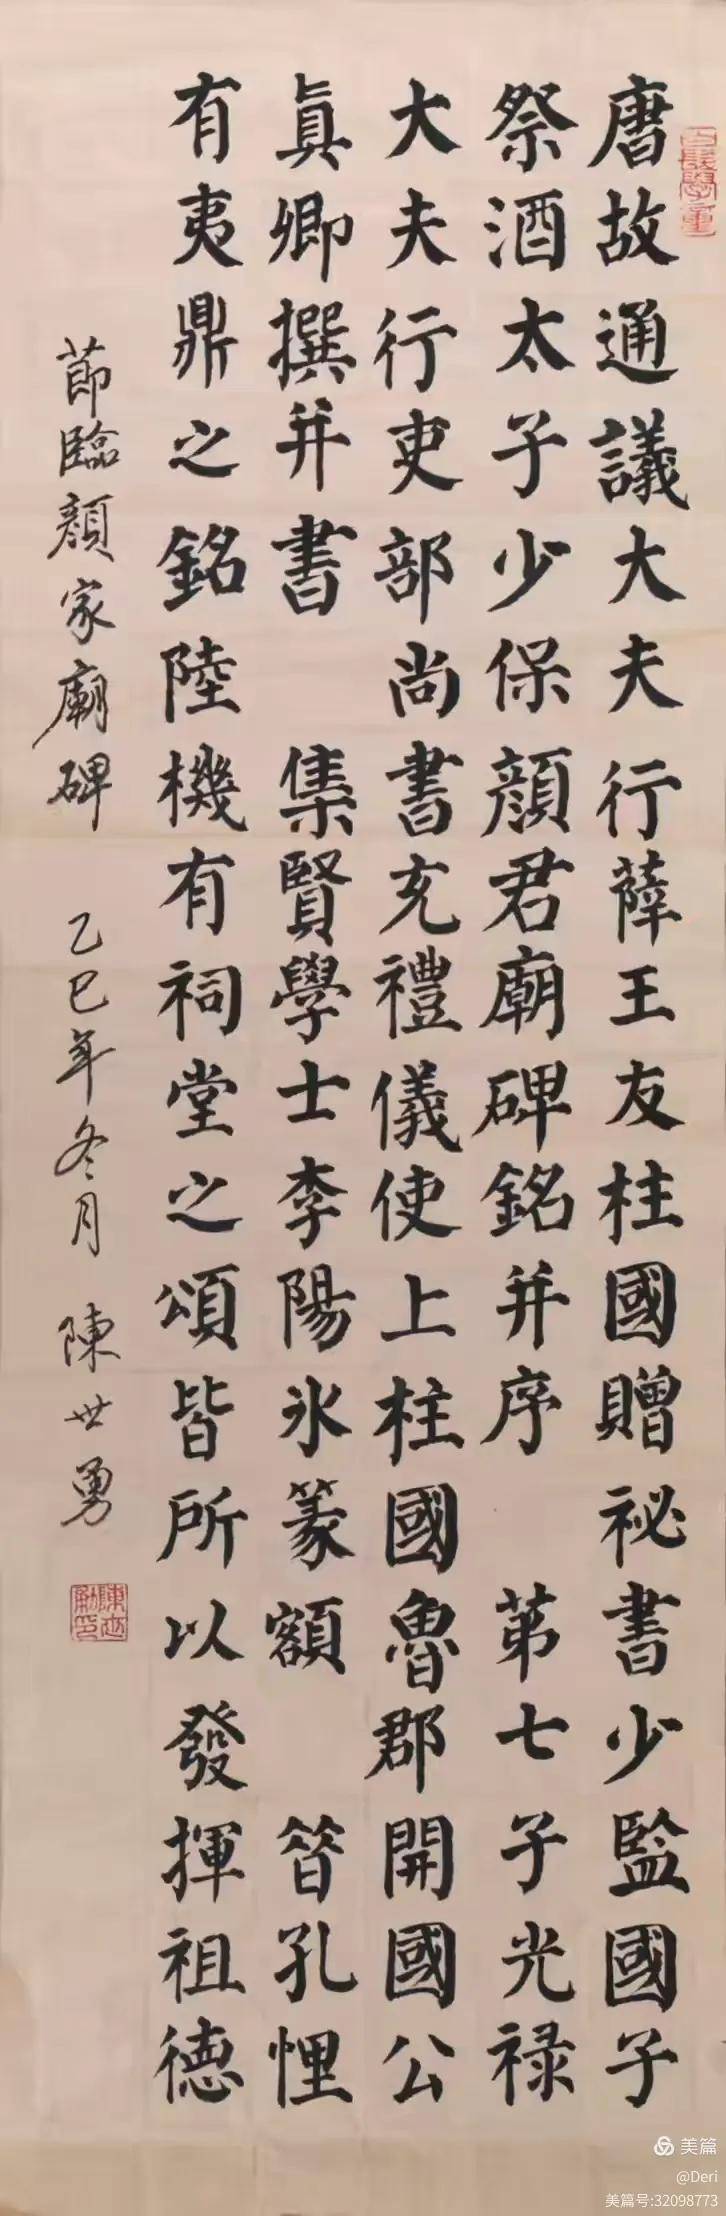 唐故通議大夫行薛王友柱國贈祕書少監國子
祭酒太子少保顏君廟碑銘并序 第七子光禄
大夫行吏部尚書充禮儀使上柱國魯郡開國公
真卿撰并書 集賢學士李陽氷篆額 昝孔悝
有夷鼎之銘陸機有祠堂之頌皆所以發揮祖德
節臨顏家廟碑 乙巳年冬月 陳世勇
美篇
@Deri
美篇号:32098773